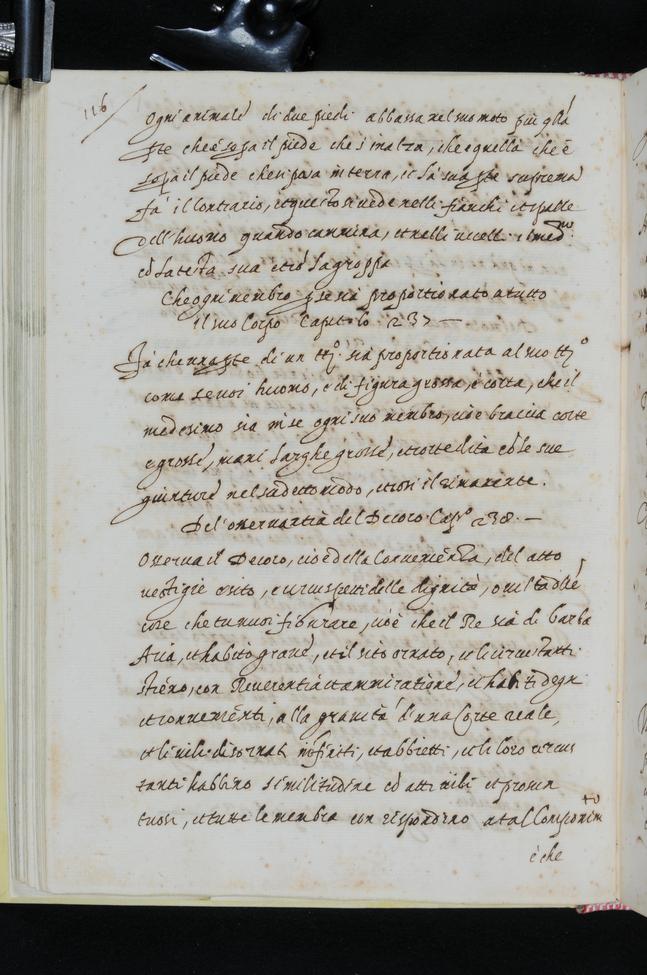 116
Ogni animale di due piedi abbassa nel suo moto più q̃lla
p̃te che è sop̃a il piede che s'inalza, che quella che è
sop̃a il piede che si posa in terra, et la sua p̃te suprema
fa il Contrario, et questo si uede nelli fianchi et spalle
dell'huomo quando cammina, et nelli uccelli il med.mo
cõ la testa sua et cõ la groppa
Che ogni membro p se sia proportionato a tutto
il suo Corpo Capitolo 237 —
Fà che una p̃te di un tt.o sia proportionata al suo tt.o
come se uoi huomo, è di figura grossa, è corta, che il
medesimo sia in se ogni suo membro, cioè braccia corte
e grosse, mani larghe grosse, et corte dita cõ le sue
giunture nel sudetto modo, et cosi il rimanente.
Del'osseruantia del Decoro Cap.o 238. —
Osserua il Decoro, cioè della Conuenienza, del atto
uestigie e sito, e circuspetti delle dignità, o uiltà delle
cose che tu uuoi figurare, cioè che il Re sia di barba
Aria, et habito graue, et il sito ornato, et li circustanti
stieno, con Reuerentia et ammiratione, et habiti degni
et conuenienti, alla grauità d'una Corte reale,
et li uili disornati infiniti, et abbietti, et li loro circus
tanti habbino similitudine cõ atti uili et prosun
tuosi, et tutte le membra corrispondino a tal Componim.to
è che